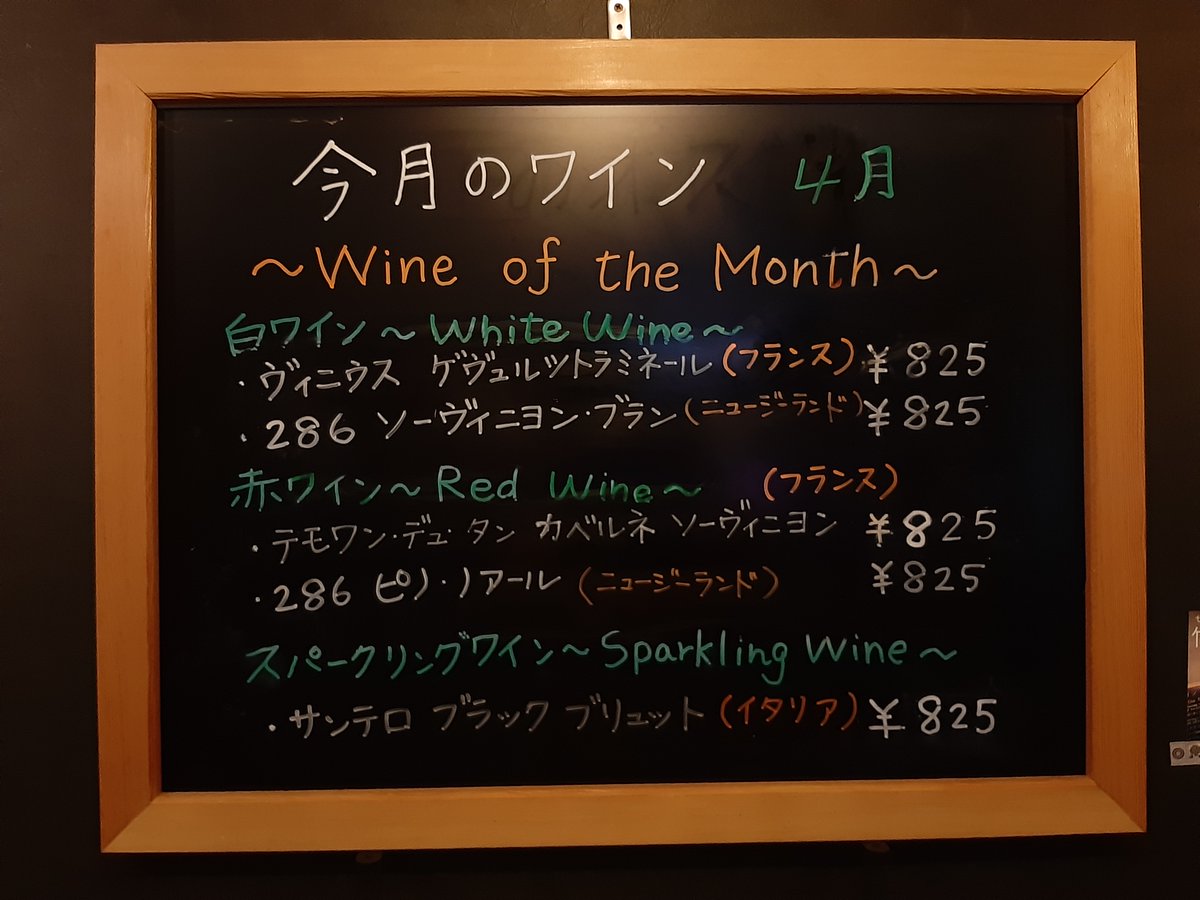 今月のワイン 4月
～Wine of the Month～
白ワイン～White Wine～
・ヴィニウス ゲヴュルツトラミネール(フランス)¥825
・286 ソーヴィニヨン・ブラン(ニュージーランド)¥825
赤ワイン～Red Wine～ (フランス)
・テモワン・デュ・タン カベルネ ソーヴィニヨン ¥825
・286 ピノ・ノアール(ニュージーランド) ¥825
スパークリングワイン～Sparkling Wine～
・サンテロ ブラック ブリュット(イタリア)¥825